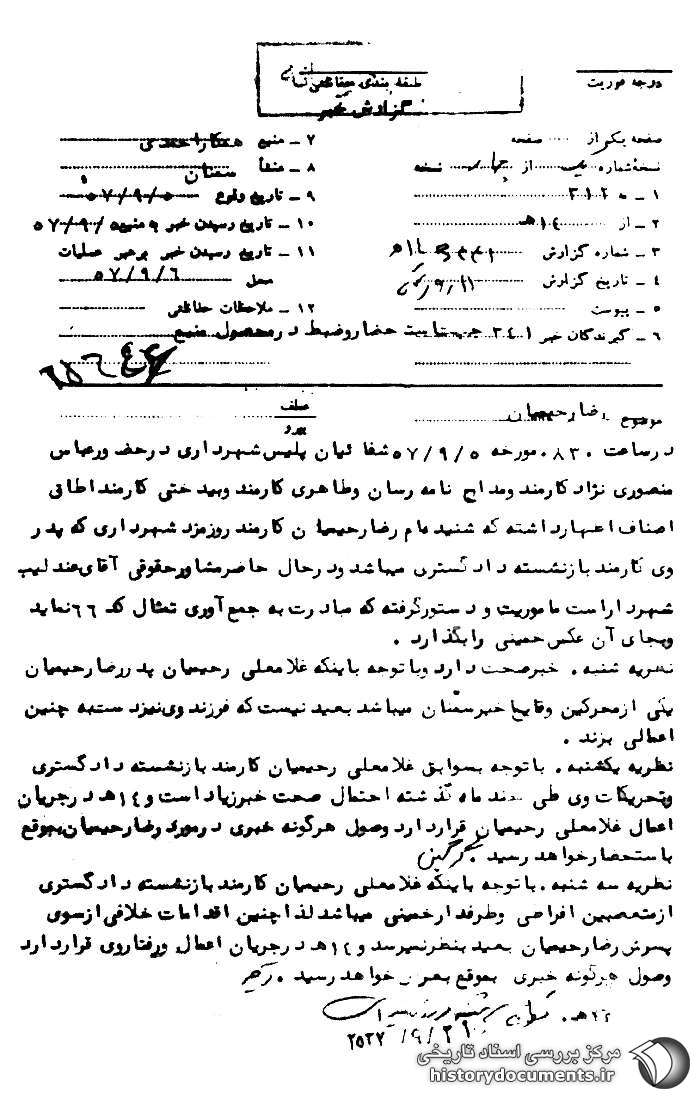 درجه فوریت
طبقه بندی حفاظتی
گزارش خبر
صفحه یک از ..... صفحه
نسخه شماره ... از چهار نسخه
۱ ـ به ۳۱۲
۲ ـ از ۱۴هـ
۳ ـ شماره گزارش
۴ ـ تاریخ گزارش
۵ ـ پیوست
۶ ـ گیرندگان خبر ۳۴۱ جهت استحضار و ضبط در محصول منبع
۷ ـ منبع همکار احمدی
۸ ـ منشأ سمنان
۹ ـ تاریخ وقوع ۵۷/۹/۵
۱۰ ـ تاریخ رسیدن خبر به منبع ۵۷/۹/۵
۱۱ ـ تاریخ رسیدن خبر به رهبر عملیات
محل ۵۷/۹/۶
۱۲ ـ ملاحظات حفاظتی
موضوع رضا رحیمیان
عطف
پیرو
در ساعت ۸۳۰ مورخه ۵۷/۹/۵ شفائیان پلیس شهرداری در حضور عباس
منصوری نژاد کارمند ومداح نامه رسان وطاهری کارمند وبیدختی کارمند اطاق
اصناف اظهار داشته که شنیده ام رضا رحیمیان کارمند روزمزد شهرداری که پدر
وی کارمند بازنشسته دادگستری میباشد ودر حال حاضر مشاور حقوقی آقای عندلیب
شهردار است ماموریت و دستور گرفته که مبادرت به جمع آوری تمثال کد ۶۶ نماید
وبجای آن عکس خمینی را بگذارد .
نظریه شنبه . خبر صحت دارد وبا توجه باینکه غلامعلی رحیمیان پدر رضا رحیمیان
یکی از محرکین وقایع اخیر سمنان میباشد بعید نیست که فرزند وی نیز دست به چنین
اعمالی بزند .
نظریه یکشنبه . با توجه بسوابق غلامعلی رحیمیان کارمند بازنشسته دادگستری
وتحریکات وی طی چند ماه گذشته احتمال صحت خبر زیاد است و ۱۴هـ در جریان
اعمال غلامعلی رحیمیان قرار دارد وصول هرگونه خبری در مورد رضا رحیمیان بموقع
باستحضار خواهد رسید .
نظریه سه شنبه . با توجه باینکه غلامعلی رحیمیان کارمند بازنشسته دادگستری
از متعصبین افراطی وطرفدار خمینی میباشد لذا چنین اقدامات خلافی از سوی
پسرش رضا رحیمیان بعید بنظر نمیرسد و ۱۴هـ در جریان اعمال ورفتار وی قرار دارد
وصول هرگونه خبری بموقع بعرض خواهد رسید .
مرکز بررسی اسناد تاریخی
historydocuments.ir